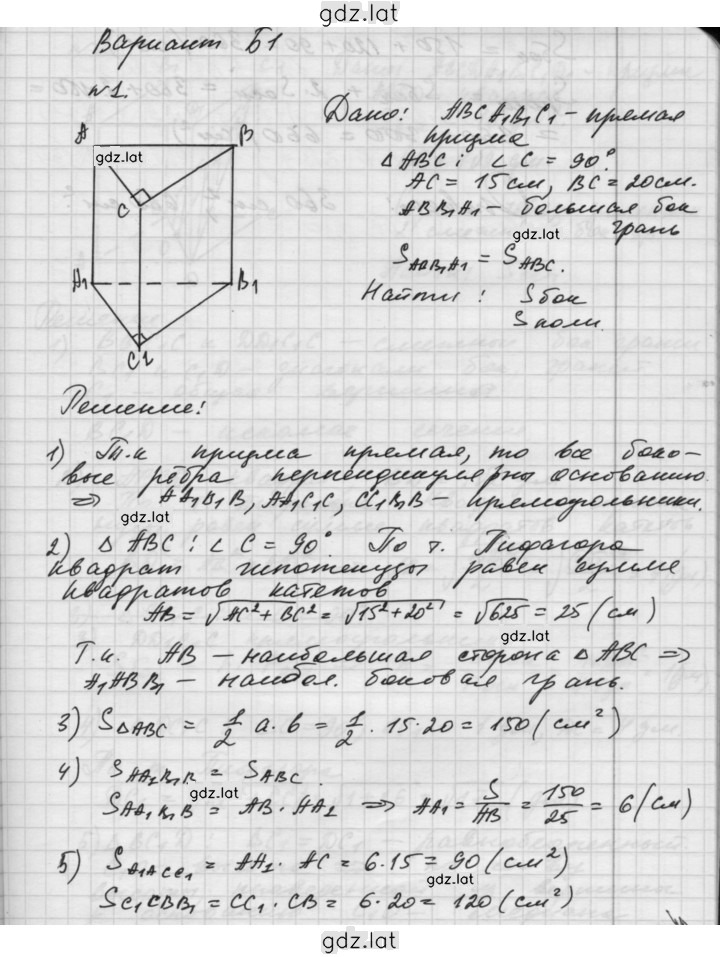 gdz.lat
Вариант Б1
№1.
A
B
gdz.lat
C
A1
B1
C1
Дано: ABCA1B1C1 – прямая
призма
△ABC: ∠C = 90°
AC = 15см, BC = 20см.
ABB1A1 – большая бок
gdz.lat
грань
S_ABB1A1 = S_ABC.
Найти: Sбок
Sполн.
Решение:
1) Т.к призма прямая, то все боко-
вые рёбра перпендикулярны основанию.
⇒ AA1B1B, AA1C1C, CC1B1B – прямоугольники.
gdz.lat
2) △ABC: ∠C = 90°. По т. Пифагора
квадрат гипотенузы равен сумме
квадратов катетов
AB = √AC² + BC² = √15² + 20² = √625 = 25 (см)
gdz.lat
Т.к. AB – наибольшая сторона △ABC ⇒
A1ABB1 – наибол. боковая грань.
3) S△ABC = 1/2 a·b = 1/2 · 15·20 = 150 (см²)
4) S_AA1B1B = S_ABC.
gdz.lat
S_AA1B1B = AB·AA1 ⇒ AA1 = S/AB = 150/25 = 6 (см)
5) S_A1ACC1 = AA1·AC = 6·15 = 90 (см²)
gdz.lat
S_C1CBB1 = CC1·CB = 6·20 = 120 (см²)
gdz.lat